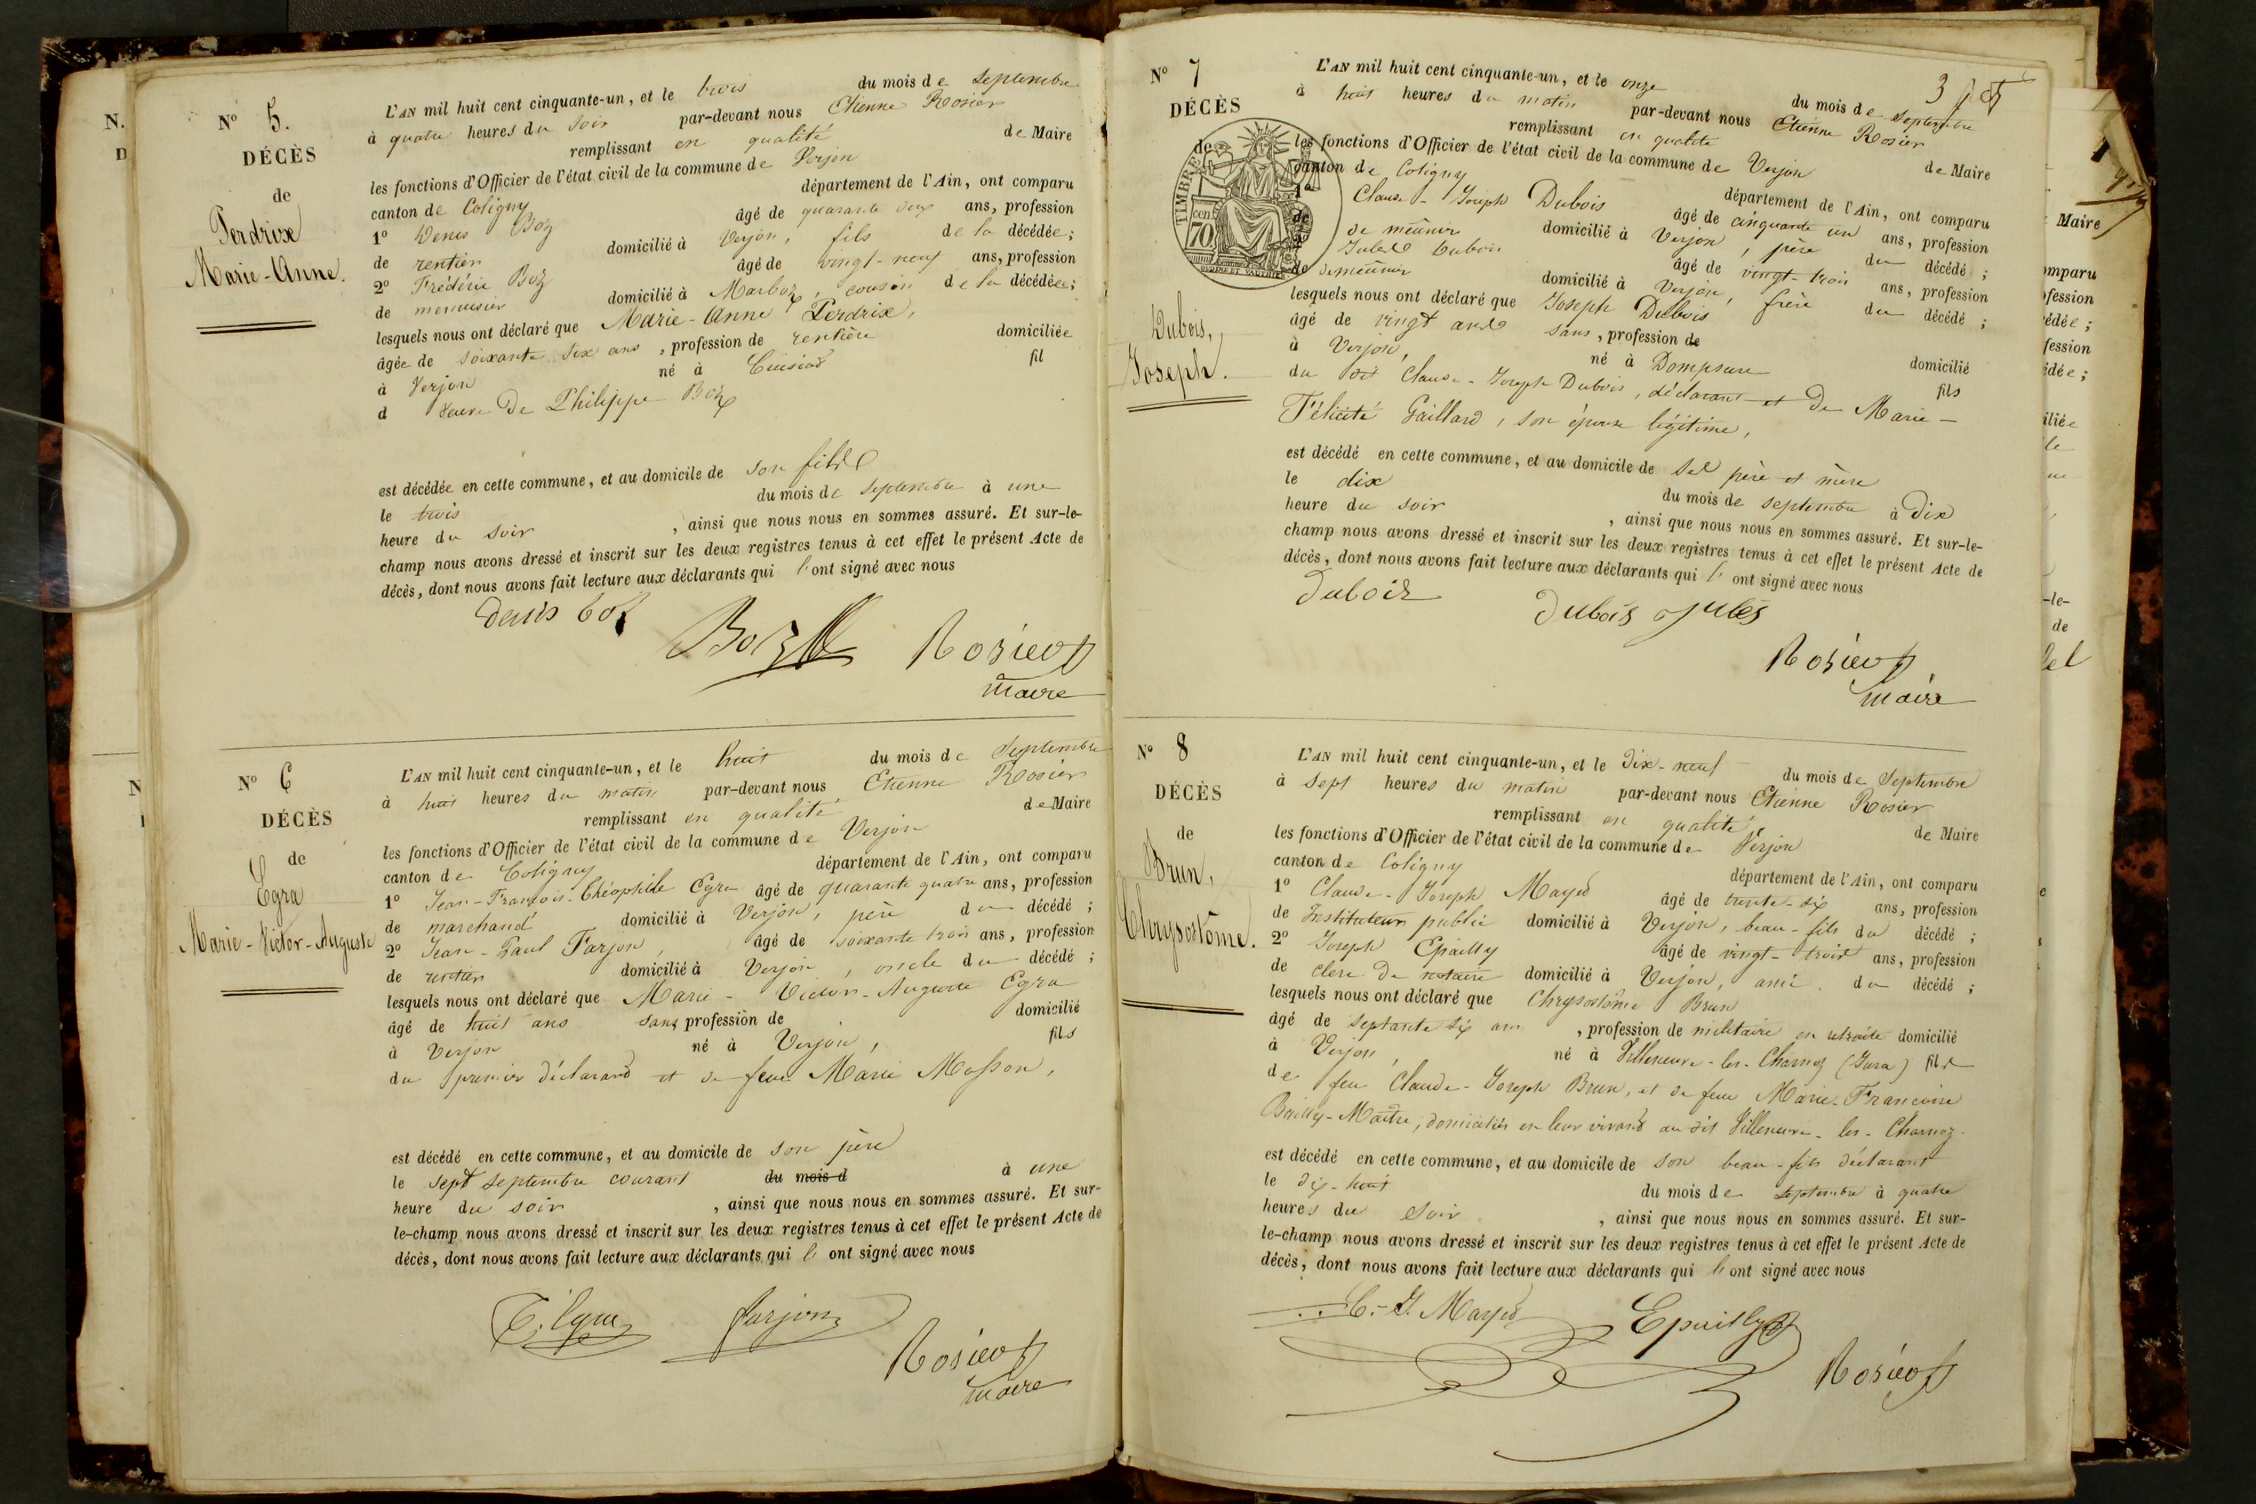 N° 5.
DÉCÈS
de
Perdrix
Marie-Anne.
L'AN mil huit cent cinquante-un, et le trois du mois de septembre
à quatre heures du soir par-devant nous Etienne Rosier
remplissant en qualité de Maire
les fonctions d'Officier de l'état civil de la commune de Verjon
canton de Coligny département de l'Ain, ont comparu
1° Denis Boz âgé de quarante deux ans, profession
de rentier domicilié à Verjon, fils de la décédée;
2° Frédéric Boz âgé de vingt-neuf ans, profession
de menuisier domicilié à Marboz, cousin de la décédée;
lesquels nous ont déclaré que Marie-Anne Perdrix,
âgée de soixante six ans, profession de rentière domiciliée
à Verjon né à Cuisiat fil
d veuve de Philippe Boz
est décédée en cette commune, et au domicile de son fils
le trois du mois de septembre à une
heure du soir, ainsi que nous nous en sommes assuré. Et sur-le-
champ nous avons dressé et inscrit sur les deux registres tenus à cet effet le présent Acte de
décès, dont nous avons fait lecture aux déclarants qui l'ont signé avec nous
Denis boz
Boz Rosier
maire
N° 6
DÉCÈS
de
Egra
Marie-Victor-Auguste
L'AN mil huit cent cinquante-un, et le huit du mois de septembre
à huit heures du matin par-devant nous Etienne Rosier
remplissant en qualité de Maire
les fonctions d'Officier de l'état civil de la commune de Verjon
canton de Coligny département de l'Ain, ont comparu
1° Jean-François-Théophile Egra âgé de quarante quatre ans, profession
de marchand domicilié à Verjon, père du décédé;
2° Jean-Paul Farjon, âgé de soixante trois ans, profession
de rentier domicilié à Verjon, oncle du décédé;
lesquels nous ont déclaré que Marie-Victor-Auguste Egra
âgé de huit ans sans profession de domicilié
à Verjon né à Verjon, fils
du premier déclarant et de feue Marie Masson,
est décédé en cette commune, et au domicile de son père
le sept septembre courant du mois d à une
heure du soir, ainsi que nous nous en sommes assuré. Et sur-
le-champ nous avons dressé et inscrit sur les deux registres tenus à cet effet le présent Acte de
décès, dont nous avons fait lecture aux déclarants qui l'ont signé avec nous
T. Egra Farjon
Rosier
maire
N° 7
DÉCÈS
de
TIMBRE
cen
70
Dubois,
Joseph.
L'AN mil huit cent cinquante-un, et le onze du mois de septembre
à huit heures du matin par-devant nous Etienne Rosier
remplissant en qualité de Maire
les fonctions d'Officier de l'état civil de la commune de Verjon
canton de Coligny département de l'Ain, ont comparu
1° Claude-Joseph Dubois âgé de cinquante un ans, profession
de meûnier domicilié à Verjon, père du décédé;
2° Jules Dubois âgé de vingt-trois ans, profession
de meûnier domicilié à Verjon, frère du décédé;
lesquels nous ont déclaré que Joseph Dubois
âgé de vingt ans sans, profession de domicilié
à Verjon, né à Dompsure fils
du dit Claude-Joseph Dubois, déclarant et de Marie-
Félicité Gaillard, son épouse légitime,
est décédé en cette commune, et au domicile de ses père et mère
le dix du mois de septembre à dix
heure du soir, ainsi que nous nous en sommes assuré. Et sur-le-
champ nous avons dressé et inscrit sur les deux registres tenus à cet effet le présent Acte de
décès, dont nous avons fait lecture aux déclarants qui l'ont signé avec nous
Dubois Dubois Jules
Rosier
maire
N° 8
DÉCÈS
de
Brun,
Chrysostôme.
L'AN mil huit cent cinquante-un, et le dix-neuf du mois de septembre
à sept heures du matin par-devant nous Etienne Rosier
remplissant en qualité de Maire
les fonctions d'Officier de l'état civil de la commune de Verjon
canton de Coligny département de l'Ain, ont comparu
1° Claude-Joseph Mayet âgé de trente-six ans, profession
de Instituteur public domicilié à Verjon, beau-fils du décédé;
2° Joseph Epailly âgé de vingt-trois ans, profession
de clerc de notaire domicilié à Verjon, ami du décédé;
lesquels nous ont déclaré que Chrysostôme Brun
âgé de septante six ans, profession de militaire en retraite domicilié
à Verjon, né à Villeneuve-les-Charnoz (Jura) fils
de feu Claude-Joseph Brun, et de feue Marie-Francoise
Bailly-Maître, domiciliés en leur vivant au dit Villeneuve-les-Charnoz
est décédé en cette commune, et au domicile de son beau-fils déclarant
le dix-huit du mois de septembre à quatre
heures du soir, ainsi que nous nous en sommes assuré. Et sur-
le-champ nous avons dressé et inscrit sur les deux registres tenus à cet effet le présent Acte de
décès, dont nous avons fait lecture aux déclarants qui l'ont signé avec nous
C.-J. Mayet Epailly
Rosier